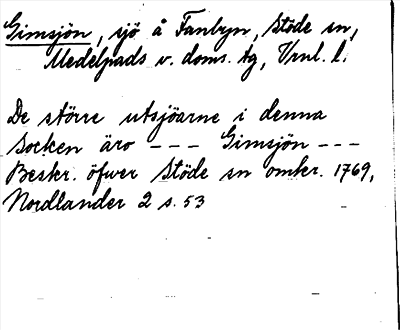 Gimsjön, sjö å Fanbyn, Stöde sn,
Medelpads v. doms. tg, Vrnl. l.
De större utsjöarne i denna
Socken äro --- Gimsjön ---
Beskr. öfver Stöde sn omkr. 1769,
Nordlander 2 s. 53